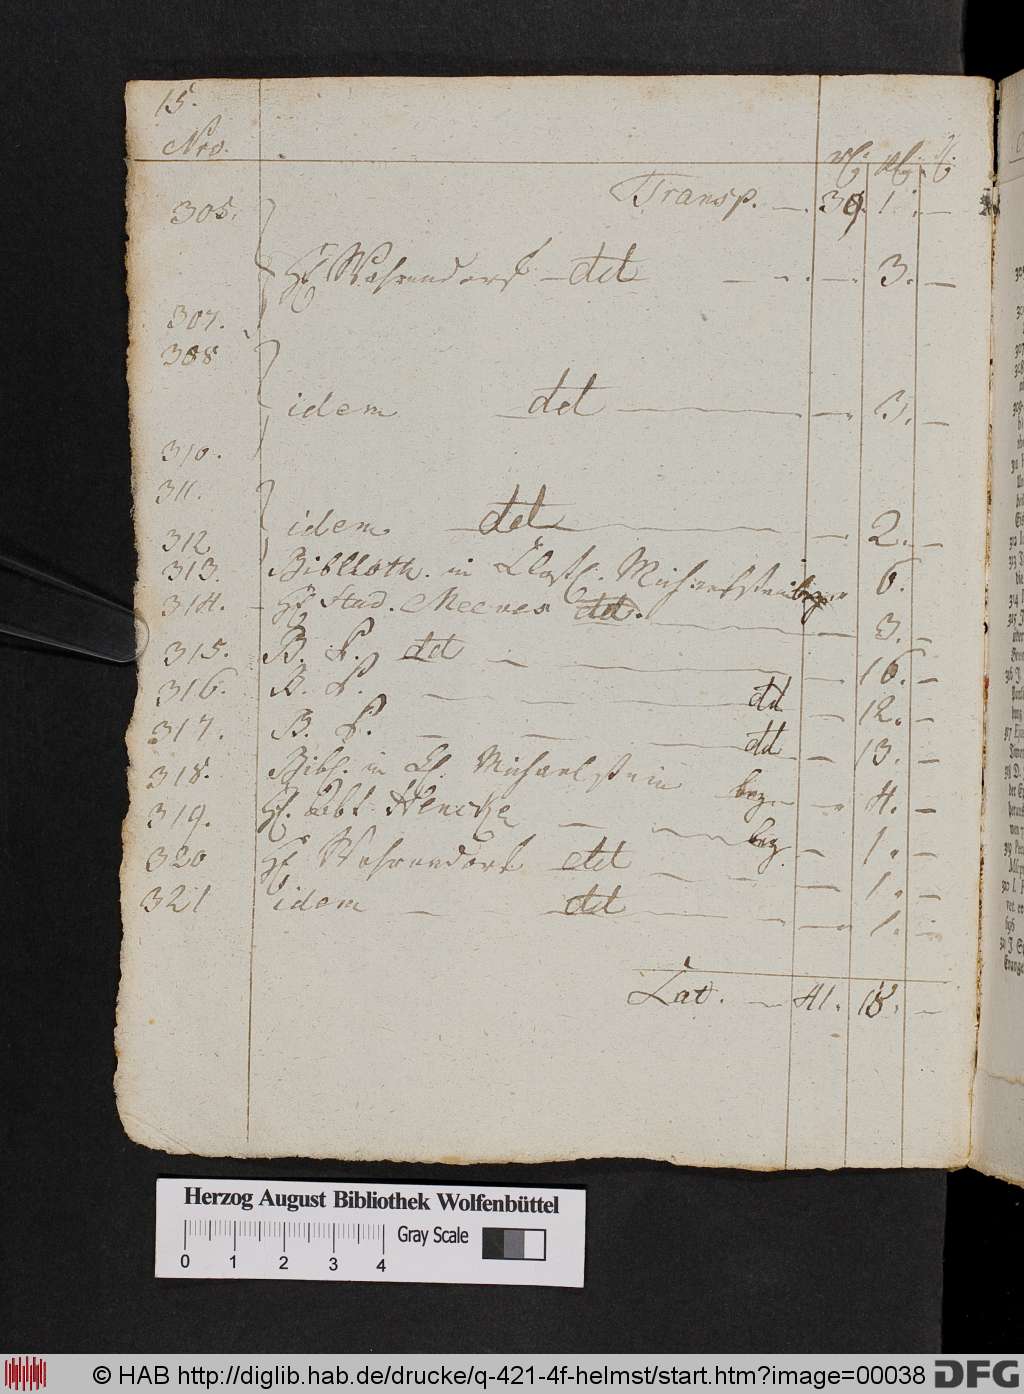 15.
Nro.
rℓ. gℓ. ₰.
Transp. — 39. 1. —
305.
H. Wahrendorf — ddt — . — . 3. —
307.
308
idem ddt — — 3. —
310.
311.
idem — ddt — — 2. —
312
313. Biblioth. in Closter Michaelstein bez. 6.
314. — H. Stud. Meenes ddt. — — 3. —
315. B. L. ddt — — — 16. —
316. B. L. — — ddt — 12. —
317. B. L. — — ddt — 13. —
318. Bibl. in Cl. Michaelstein bez. — 4. —
319. H. Abt Hencke — — bez. — 1. —
320 H. Wahrendorf ddt — — — 1. —
321 idem — — ddt — — 1. —
Lat. — 41. 18. —
Herzog August Bibliothek Wolfenbüttel
0 1 2 3 4 Gray Scale
© HAB http://diglib.hab.de/drucke/q-421-4f-helmst/start.htm?image=00038 DFG